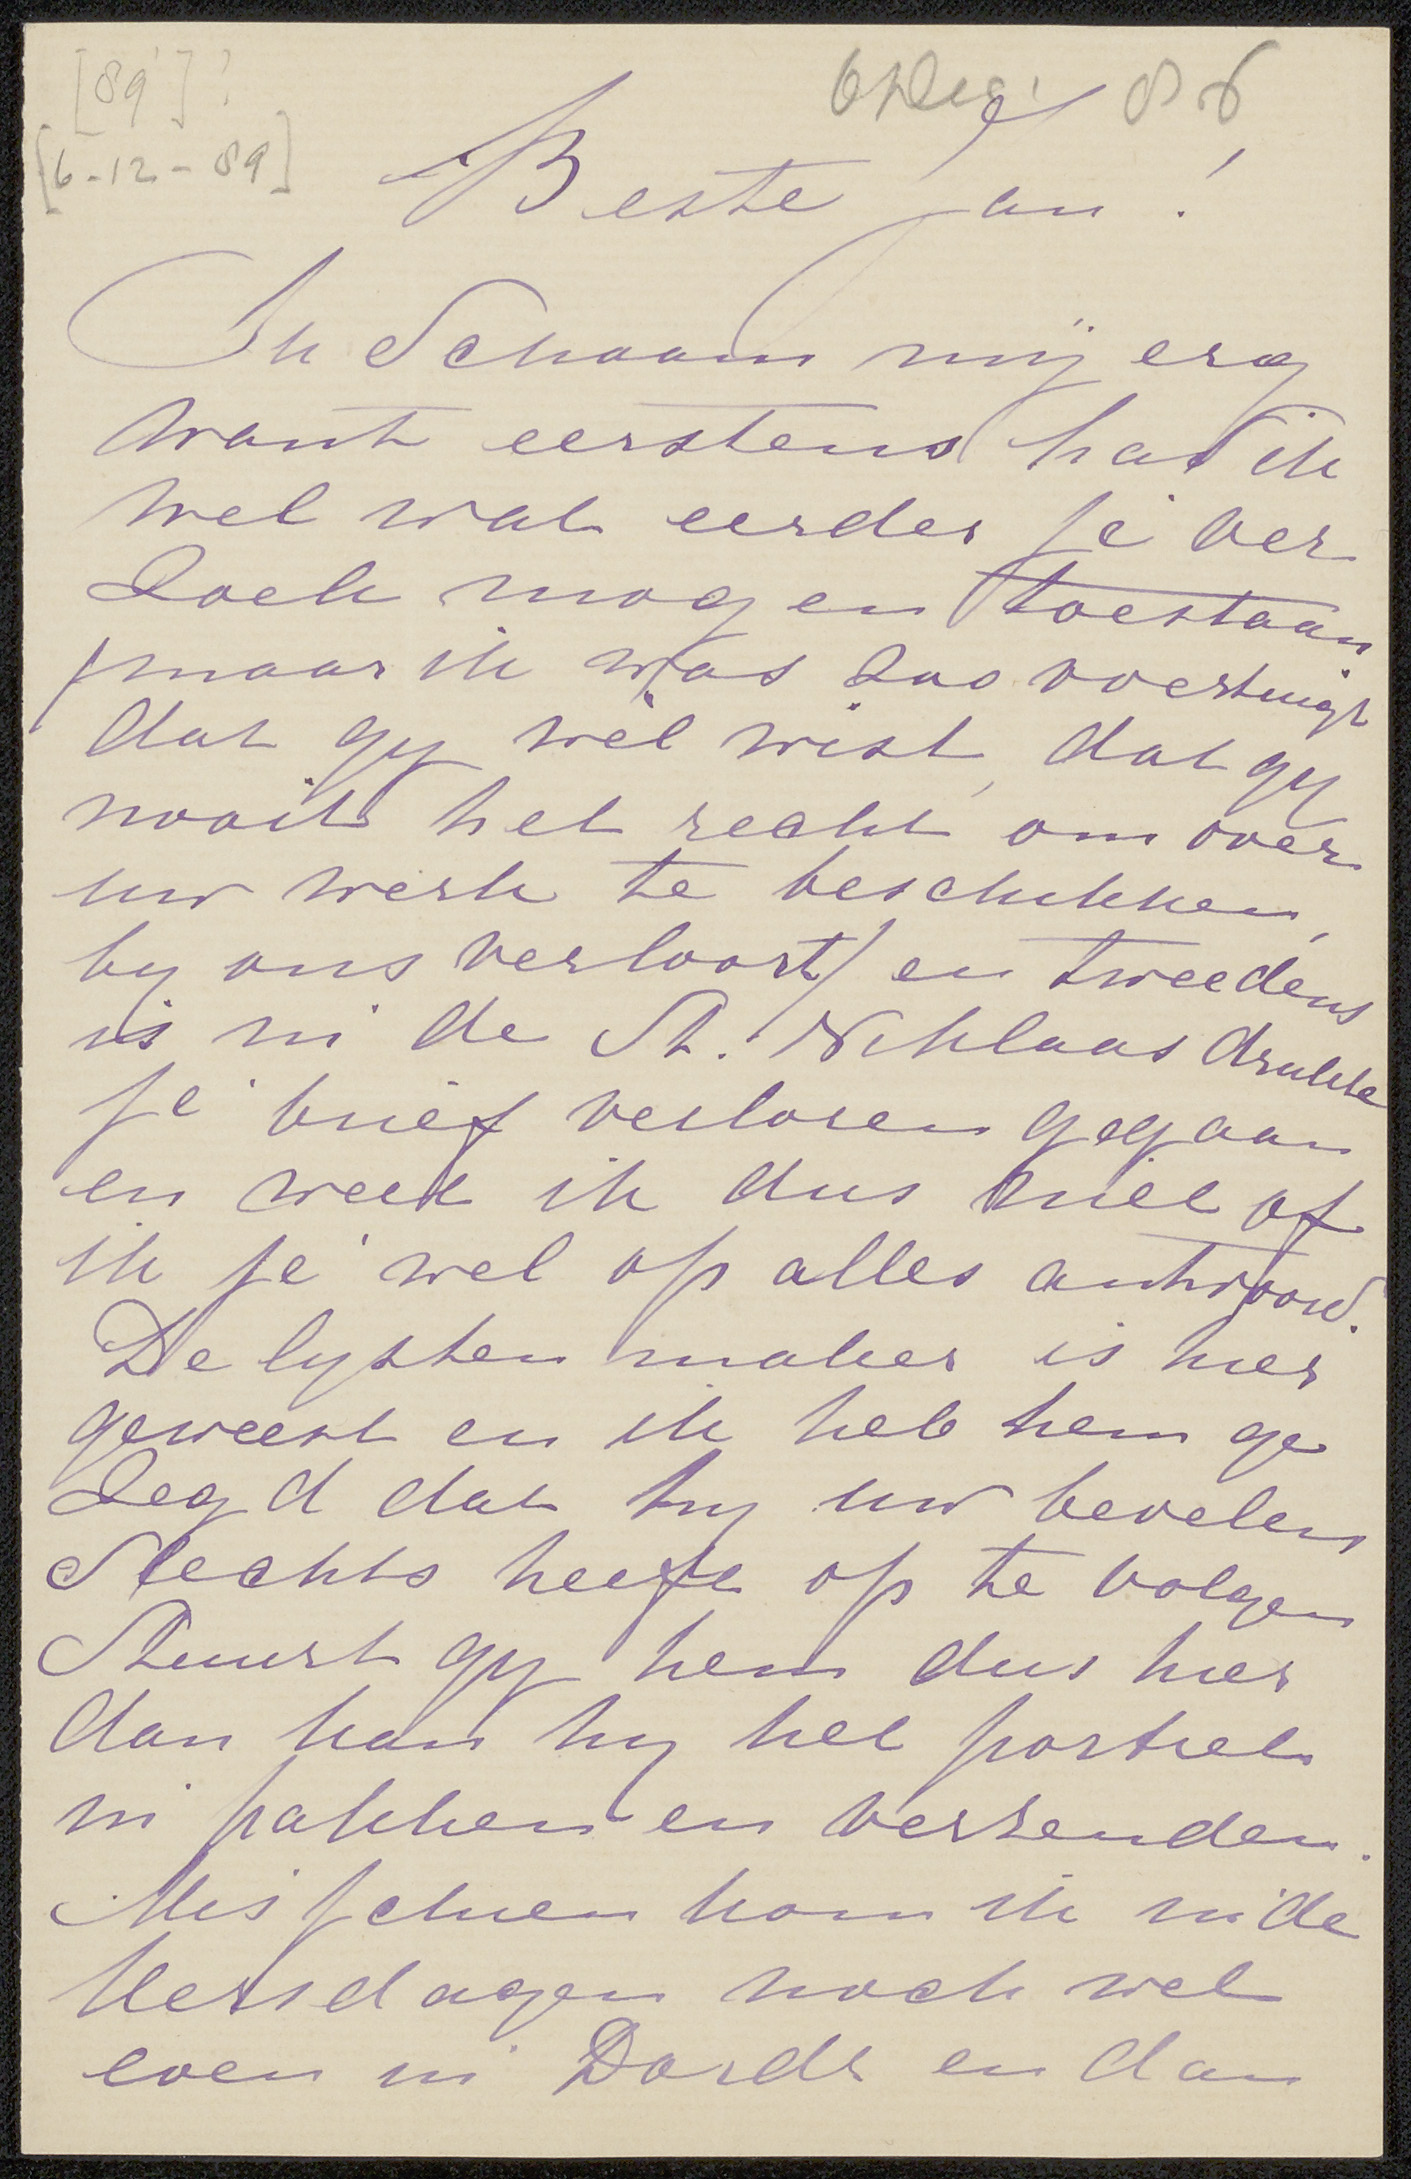 [89']?
6 Dec. 86
[6-12-89]
Beste Jan!
Ik Schaam mij erg
want eerstens had ik
wel wat eerder je ver
Zoek mogen toestaan
/maar ik was Zoo overtuigt
dat gy wel wist, dat gy
nooit het recht om over
uw werk te beschikken,
by ons verloort/ en tweedens
is in de St. Niklaas drukte
je brief verloren gegaan
en weet ik dus niet of
ik je wel op alles antwoord.
De lysten maker is hier
geweest en ik heb hem ge
Zegd dat hy uw bevelen
Slechts heeft op te volgen
Stuurt gy hem dus hier
dan kan hy het portret
in pakken en verzenden.
Misschien kom ik in de
Kersdagen noch wel
even in Dordt en dan